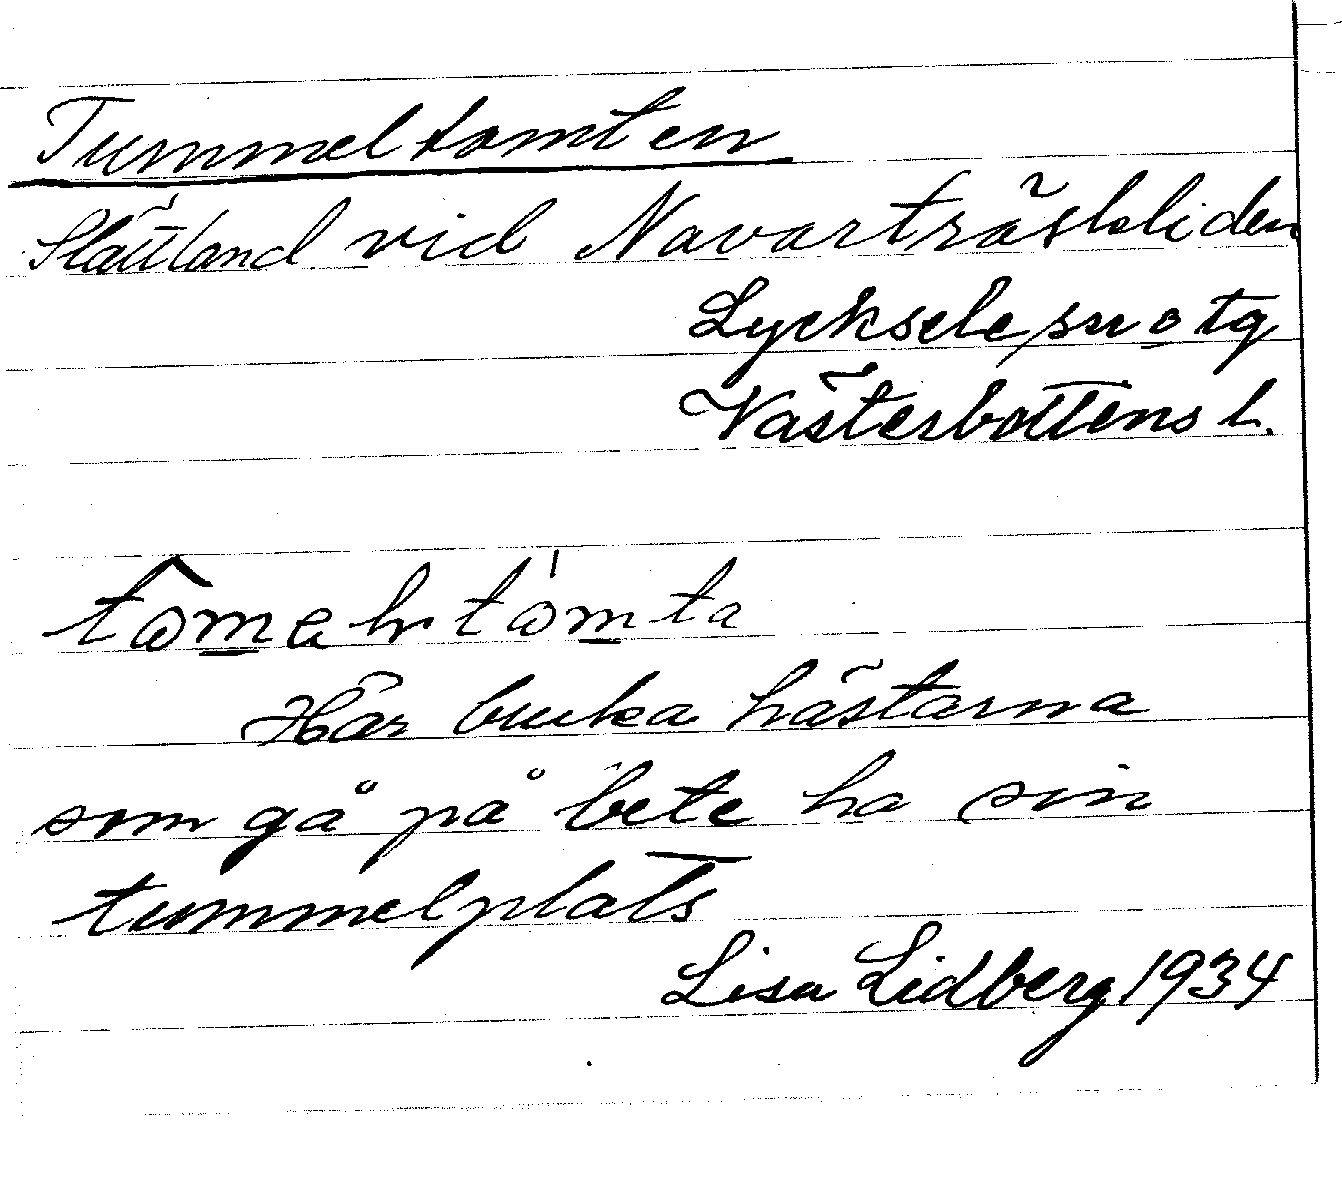 Tummeltomten
Slåttland vid Navarträskliden
Lycksele sn o tg
Västerbottens l.
Här bruka hästarna
som gå på bete ha sin
tummelplats
Lisa Lidberg 1934